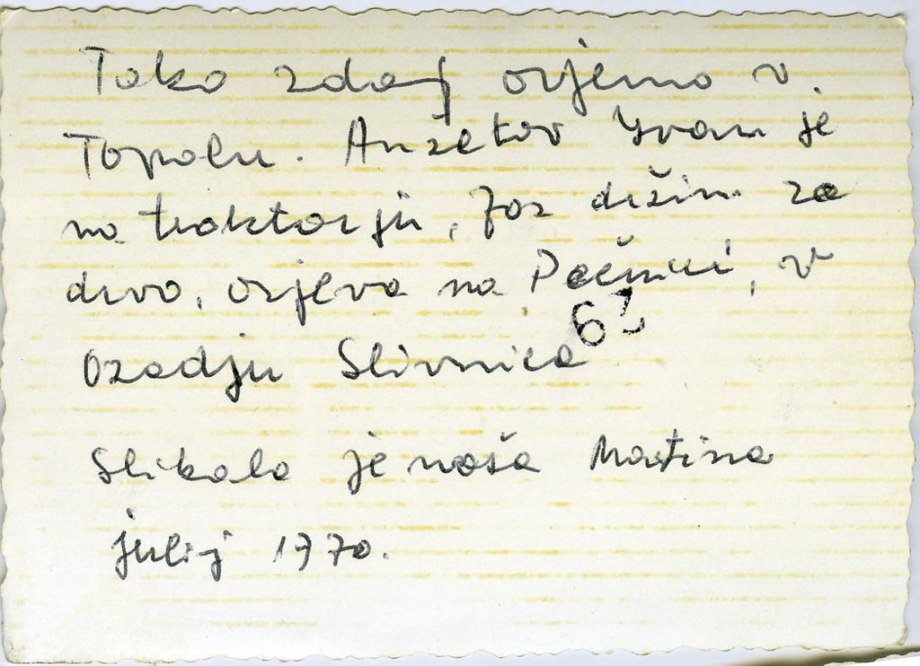 Tako zdaj orjemo v
Topolu. Anzetov Ivan je
na traktorju, jaz držim za
drvo, orjeva na Pečnici, v
61
Ozadju Slivnica
Slikala je naša Martina
julij 1970.